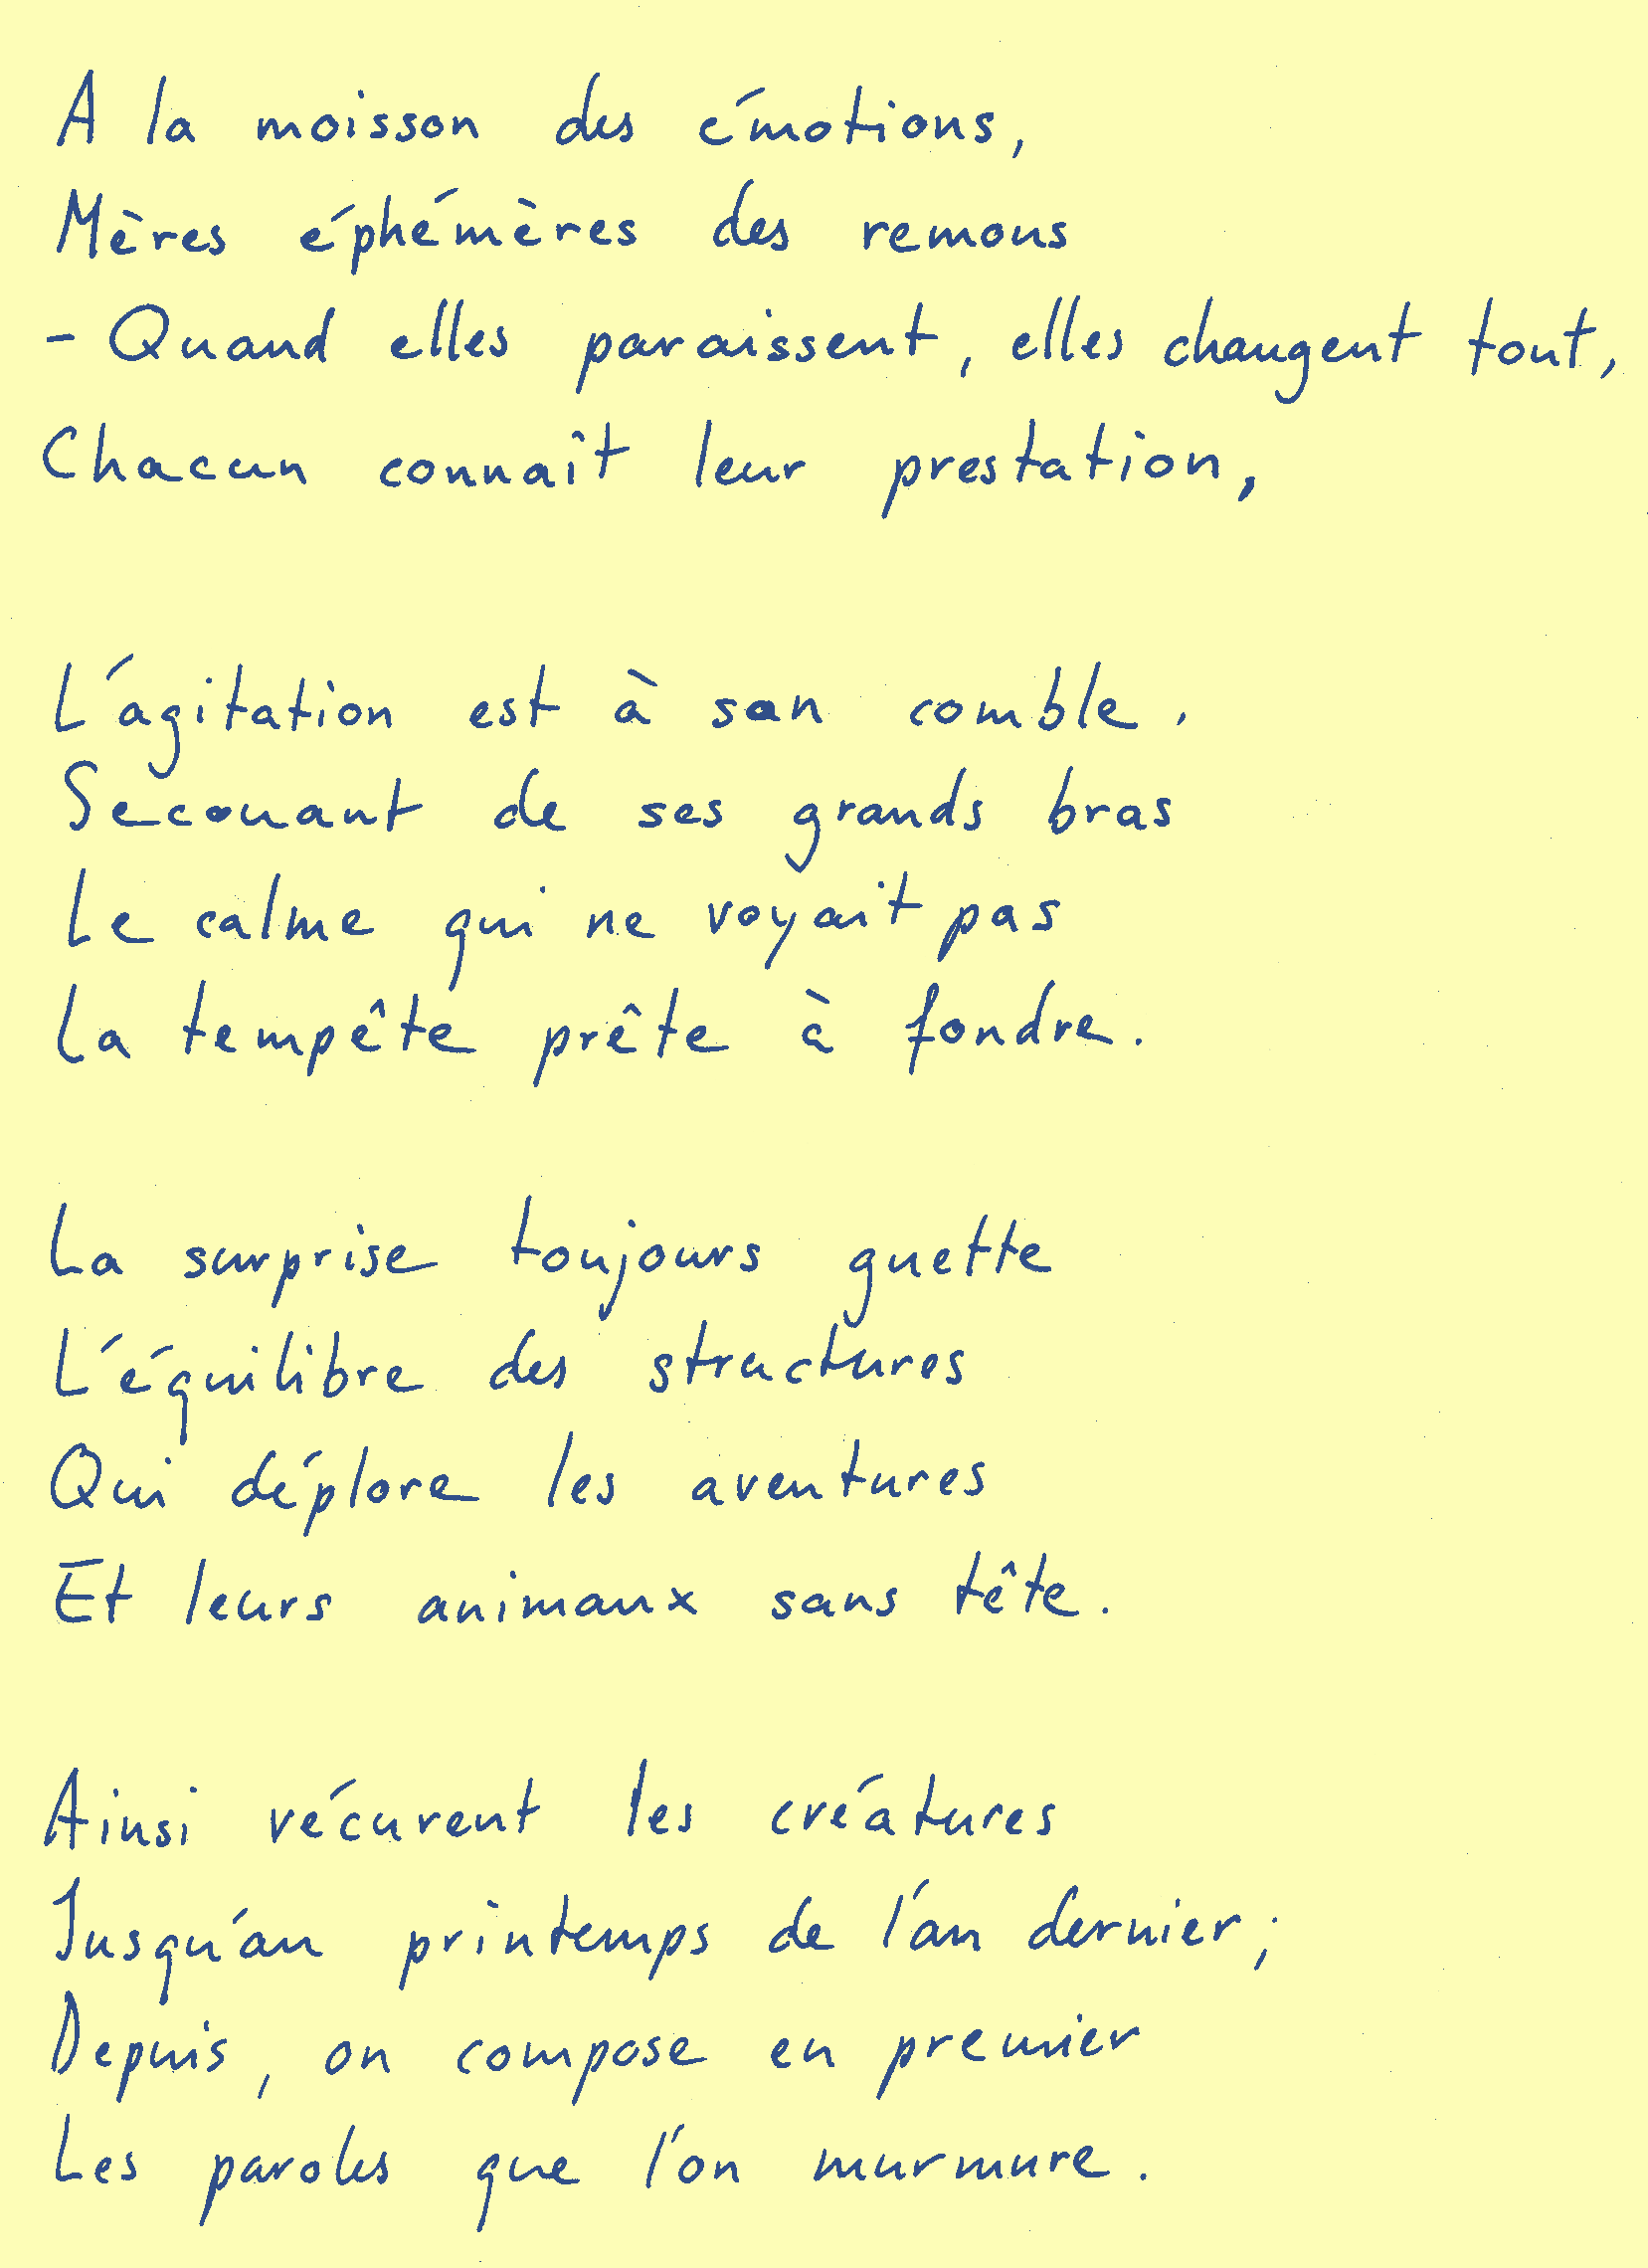 A la moisson des émotions,
Mères éphémères des remous
- Quand elles paraissent, elles changent tout,
Chacun connaît leur prestation,
L'agitation est à son comble,
Secouant de ses grands bras
Le calme qui ne voyait pas
La tempête prête à fondre.
La surprise toujours guette
L'équilibre des structures
Qui déplore les aventures
Et leurs animaux sans tête.
Ainsi vécurent les créatures
Jusqu'au printemps de l'an dernier;
Depuis, on compose en premier
Les paroles que l'on murmure.